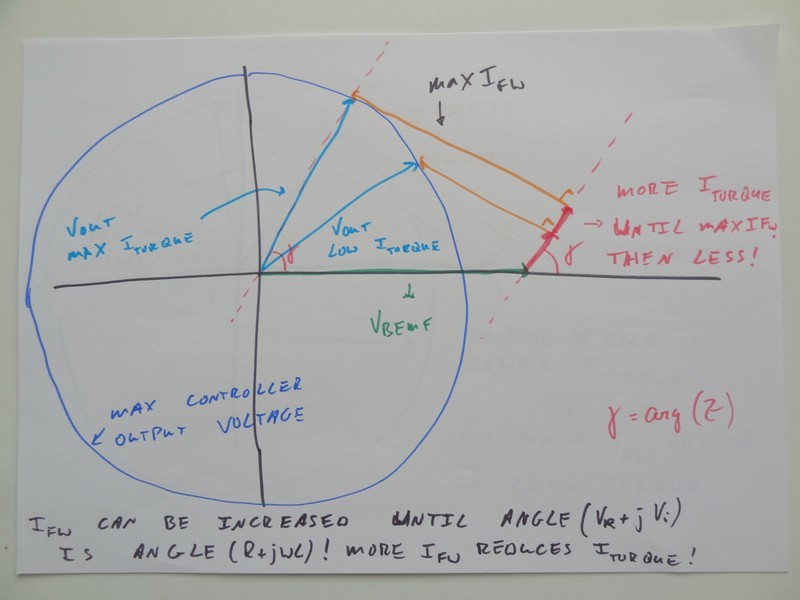 MAX I_FW
VOUT
MAX I_TORQUE
VOUT
LOW I_TORQUE
γ
MORE I_TORQUE
→ UNTIL MAX I_FW
THEN LESS!
γ
V_BEMF
MAX CONTROLLER
OUTPUT VOLTAGE
γ = arg (Z)
I_FW CAN BE INCREASED UNTIL ANGLE (V_R + j V_i)
IS ANGLE (R+jWL)! MORE I_FW REDUCES I_TORQUE!